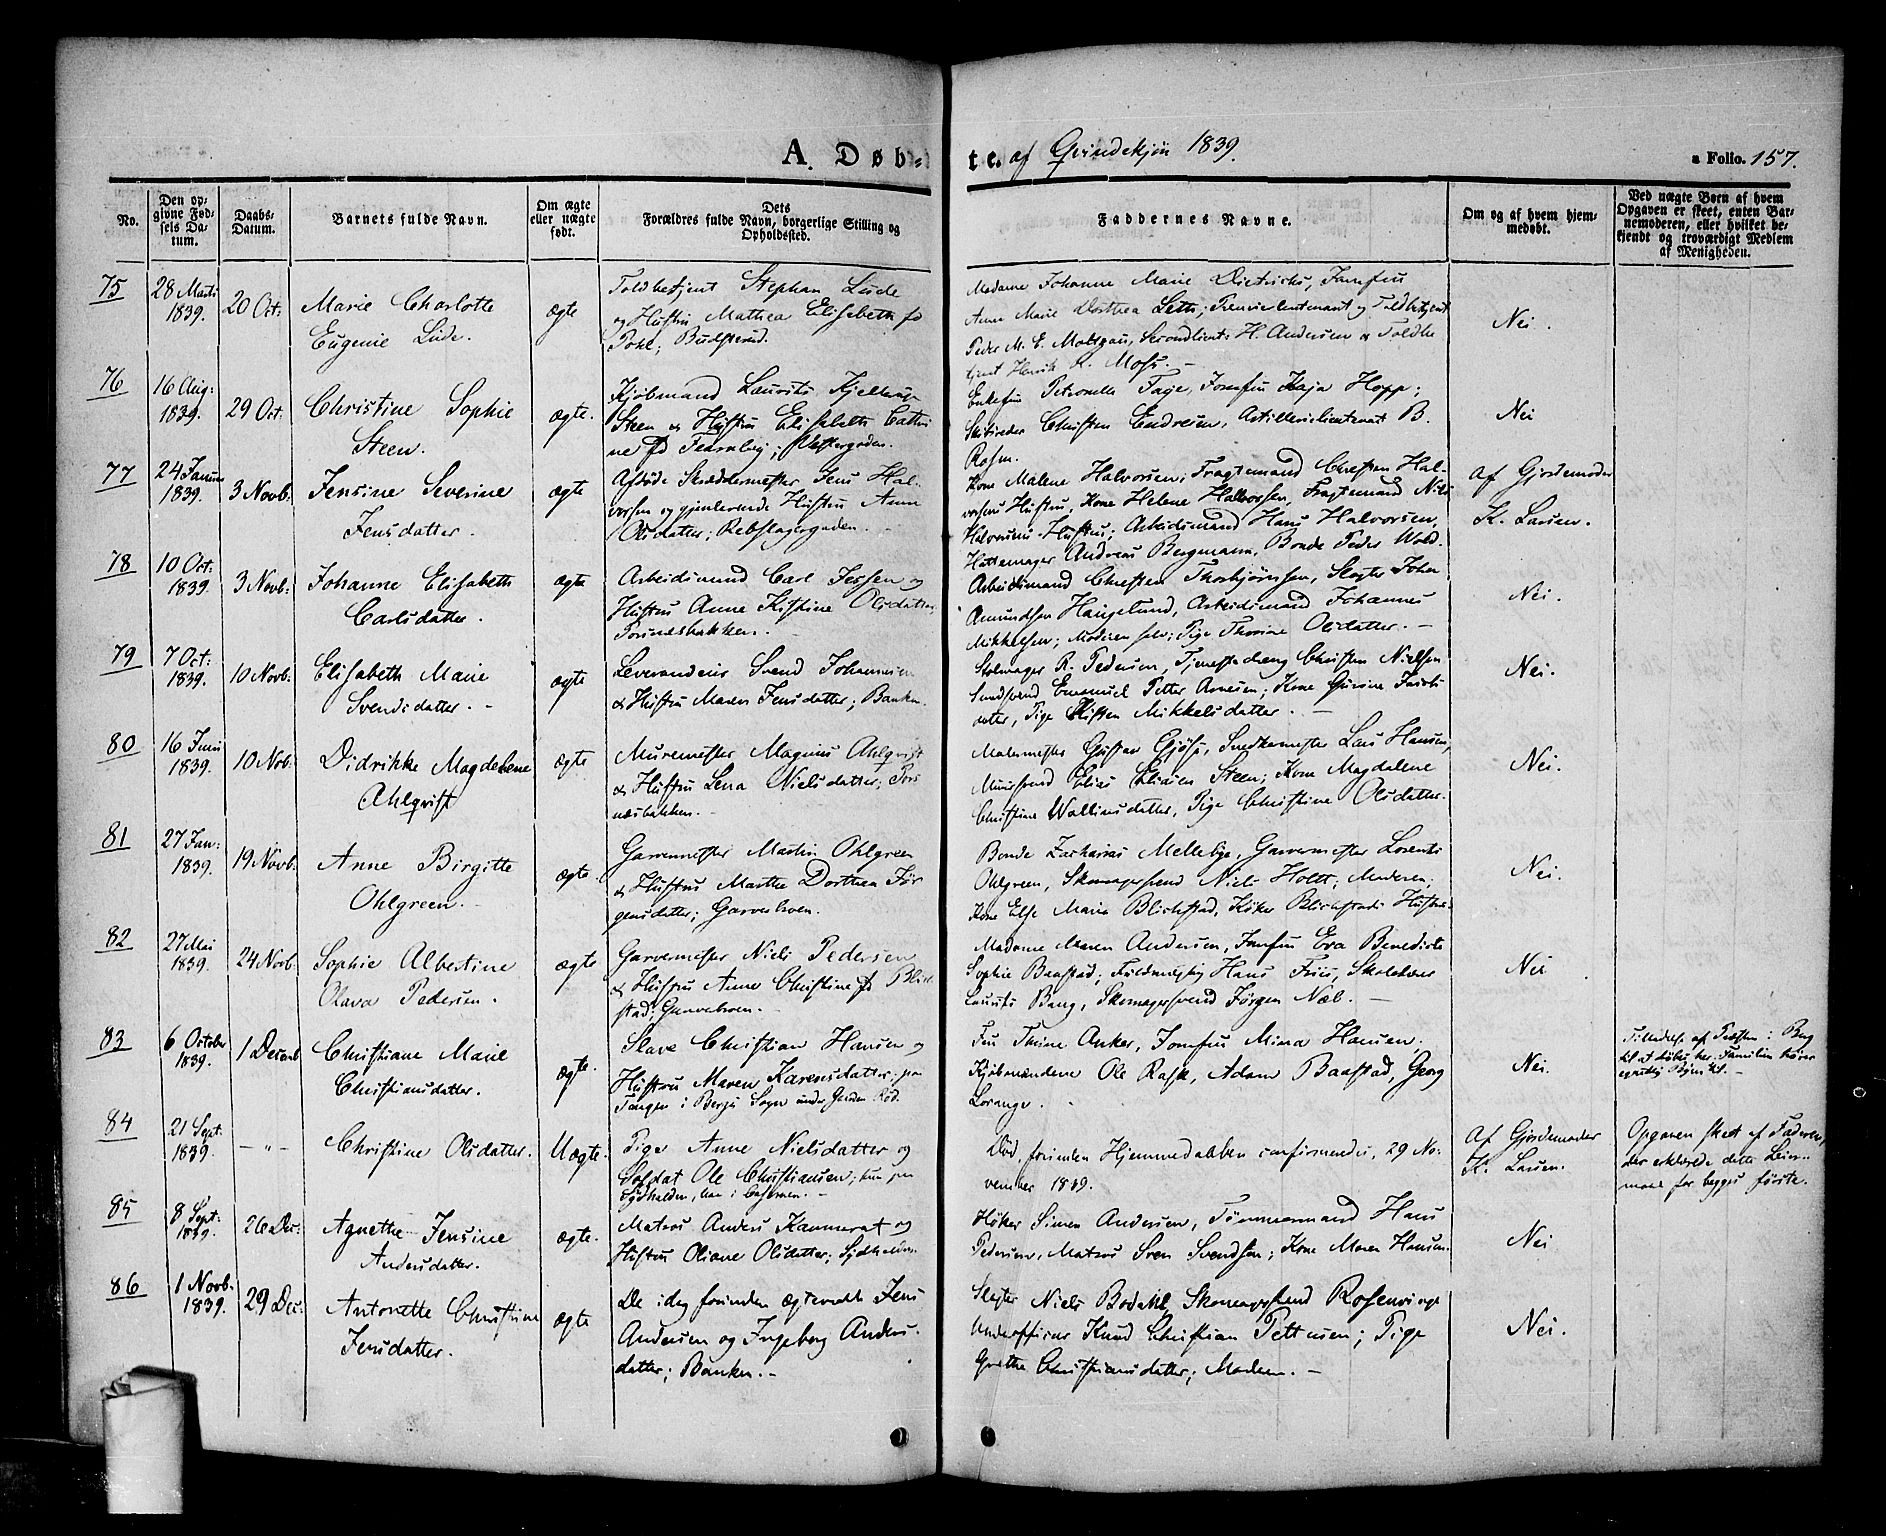 A. Døb-
te. af Qvindekjøn 1839.
a Folio. 157.
No.
Den op-
givne Fød-
sels Da-
tum.
Daabs-
Datum.
Barnets fulde Navn.
Om ægte
eller uægte
født.
Dets
Forældres fulde Navn, borgerlige Stilling og
Opholdssted.
Faddernes Navne.
Om og af hvem hjem-
medøbt.
Ved uægte Børn af hvem
Opgaven er skeet, enten Bar-
nemoderen, eller hvilket be-
kjendt og troværdigt Medlem
af Menigheden.
75
28 Marts
1839.
20 Oct:
Marie Charlotte
Eugenie Lüde.
ægte
Toldbetjent Stephan Lüde
og Hustru Mathea Elisabeth fd
Pohl;
Madame Johanne Marie Dietrichs, Jomfru
Anne Marie Dorthea Leth; Premierlieutenant og Toldbetjent
Peder M. E. Secondlieut: H. Andersen & Toldbe
tjent Henrik R. Moss. -
Nei.
76
16 Aug:
1839.
29 Oct:
Christine Sophie
Steen.
ægte.
Kjøbmand Laurits
Steen & Hustru Elisabeth Cathri
ne fd Fearnley; Vestergaden.
Enkefru Petronelle Faye, Jomfru Kaja Hopp;
Christen Endresen, Artillerielieutenant B.
Rosen.
Nei
77
24 Januar
1839.
3 Novb.
Jensine Severine
Jensdatter.
ægte
Afdøde Skræddermester Jens Hal-
vorsen og gjenlevende Hustru Anne
Olsdatter; Rebslagergaden. -
Kone Malene Halvorsen; Fragtemand Christen Hal-
vorsens Hustru, Kone Helene Halvorsen, Fragtemand Niels
Halvorsens Hustru; Arbeidsmand Hans Halvorsen,
Hattemager Andreas Bergmann, Bonde Peder Wold.
Af Gjordemoder
K. Larsen.
78
10 Oct:
1839.
3 Novb:
Johanne Elisabeth
Carlsdatter.
ægte
Arbeidsmand Carl Jessen og
Hustru Anne Kistine Olsdatter,
Porsnæsbakken. -
Arbeidsmand Christen Thorbjørnsen, Slagter Johan
Amundsen Haugelund, Arbeidsmand Johannes
Mikkelsen; Moderen selv; Pige Thorine Olsdatter. -
Nei.
79
7 Oct:
1839.
10 Novb.
Elisabeth Marie
Svendsdatter. -
ægte
Leverandeur Svend Johannesen
& Hustru Maren Jensdatter; Banken.
Stolmager R. Pedersen, Tjenestedreng Christen Nielsen
Emanuel Petter Arnesen; Kone Gurine Jacobs
datter, Pige Kisten Mikkelsdatter. -
Nei.
80
16 Juni
1839.
10 Nob.
Didrikke Magdelene
Ahlqvist
ægte
Muremester Magnus Ahlqvist
& Hustru Lena Nielsdatter; Pors
næsbakken. -
Malermester Gustav Gjöss, Snedkermester Lars Hansen,
Muursvend Elias Eliasen Steen; Kone Magdalene
Christine Wallinsdatter, Pige Christine Olsdatter.
Nei.
81
27 Jan:
1839.
19 Novb.
Anne Birgitte
Ohlgreen. -
ægte.
Garvermester Martin Ohlgreen
& Hustru Marthe Dorthea Jør
gensdatter; Garverhoven.
Bonde Zacharias Melleby, Garvermester Lorents
Ohlgreen, Skomagersvend Niels Holtt; Moderen;
Kone Else Maria Blichstad, Høker Blichstads Hustru.
Nei.
82
27 Mai
1839.
24 Novb
Sophie Albertine
Olava Pedersen.
ægte
Garvermester Niels Pedersen
& Hustru Anne Christine fd Blik
stad; Garverhoven. -
Madame Maren Andersen, Jomfru Eva Benedicte
Sophie Baastad; Fuldmægtig Hans Friis, Skolelærer
Laurits Bang, Skomagersvend Jørgen Næb. -
Nei
83
6 October
1839.
1 Decemb
Christiane Marie
Christiansdatter.
ægte.
Slave Christian Hansen og
Hustru Maren Karensdatter; paa
Tangen i Bergs Sogn under Gaarden Rød.
Fru Thrine Anker, Jomfru Mina Hansen.
Kjøbmændene Ole Rask, Adam Baastad, Georg
Lorange.
Nei.
Tilladelse af Præsten i Berg
til at døbes her. Familien hører
egentlig Byen til. -
84
21 Sept:
1839.
- " -
Christine Olsdatter.
Uægte.
Pige Anne Nielsdatter og
Soldat Ole Christiansen; hun paa
Sydhalden, han i -
Død, forinden Hjemmedaaben confirmeredes, 29 No-
vember 1839.
Af Gjordemoder
K. Larsen.
Opgaven skeet af Faderen,
der erklærede dette Leier-
maal for begges første.
85
8 Sept:
1839.
26 Dec:
Agnethe Jensine
Andersdatter.
ægte.
Matros Anders Kammerat og
Hustru Oliane Olsdatter; Sydhalden
Høker Simen Andersen, Tømmermand Hans
Pedersen, Matros Sven Svendsen; Kone Maren Hansen.
Nei
86
1 Novb.
1839.
29 Dec:
Antonette Christine
Jensdatter.
ægte
De idag forinden ægteviede Jens
Andersen og Ingeborg Anders-
datter; Banken. -
Slagter Niels Bodahl, Skomagersvend Rosenvinge
Underofficeer Knud Christian Pettersen; Pige
Grethe Christiansdatter; Moderen. -
Nei.